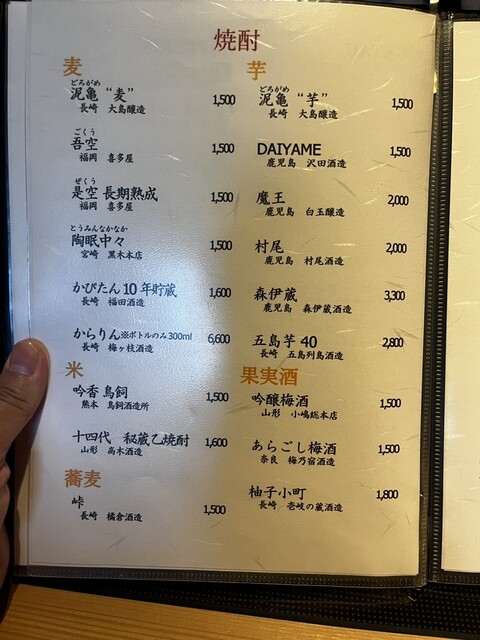 焼酎
麦
どろがめ
泥亀 “麦” 1,500
長崎 大島醸造
ごくう
吾空 1,500
福岡 喜多屋
ぜくう
是空 長期熟成 1,500
福岡 喜多屋
とうみんなかなか
陶眠中々 1,500
宮崎 黒木本店
かぴたん10年貯蔵 1,600
長崎 福田酒造
からりん※ボトルのみ300ml 6,600
長崎 梅ヶ枝酒造
米
吟香鳥飼 1,500
熊本 鳥飼酒造所
十四代 秘蔵乙焼酎 1,600
山形 高木酒造
蕎麦
峠 1,500
長崎 橘倉酒造
芋
どろがめ
泥亀 “芋” 1,500
長崎 大島醸造
DAIYAME 1,500
鹿児島 沢田酒造
魔王 2,000
鹿児島 白玉醸造
村尾 2,000
鹿児島 村尾酒造
森伊蔵 3,300
鹿児島 森伊蔵酒造
五島芋40 2,800
長崎 五島列島酒造
果実酒
吟醸梅酒 1,500
山形 小嶋総本店
あらごし梅酒 1,500
奈良 梅乃宿酒造
柚子小町 1,800
長崎 壱岐の蔵酒造